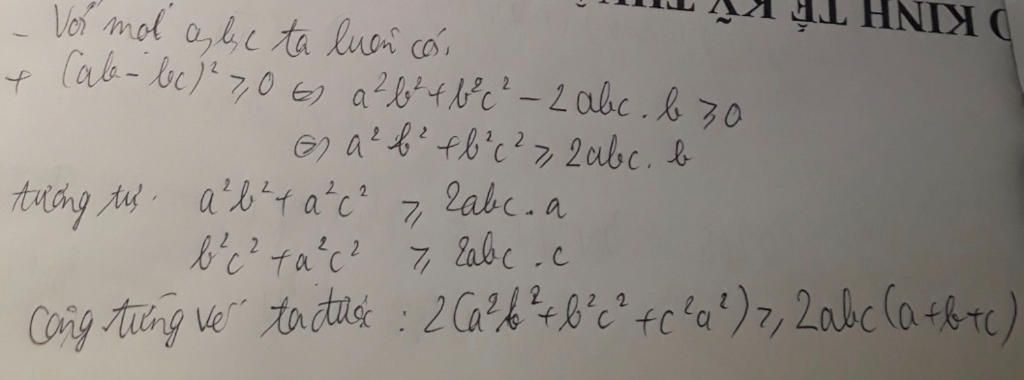 O KINH TẾ KỸ THU
- Với mọi a,b,c ta luôn có,
+ (ab-bc)² ≥ 0 ⇔ a²b² + b²c² - 2abc.b ≥ 0
⇔ a²b² + b²c² ≥ 2abc.b
tương tự. a²b² + a²c² ≥ 2abc.a
b²c² + a²c² ≥ 2abc.c
Cộng từng vế ta được : 2(a²b² + b²c² + c²a²) ≥ 2abc(a+b+c)